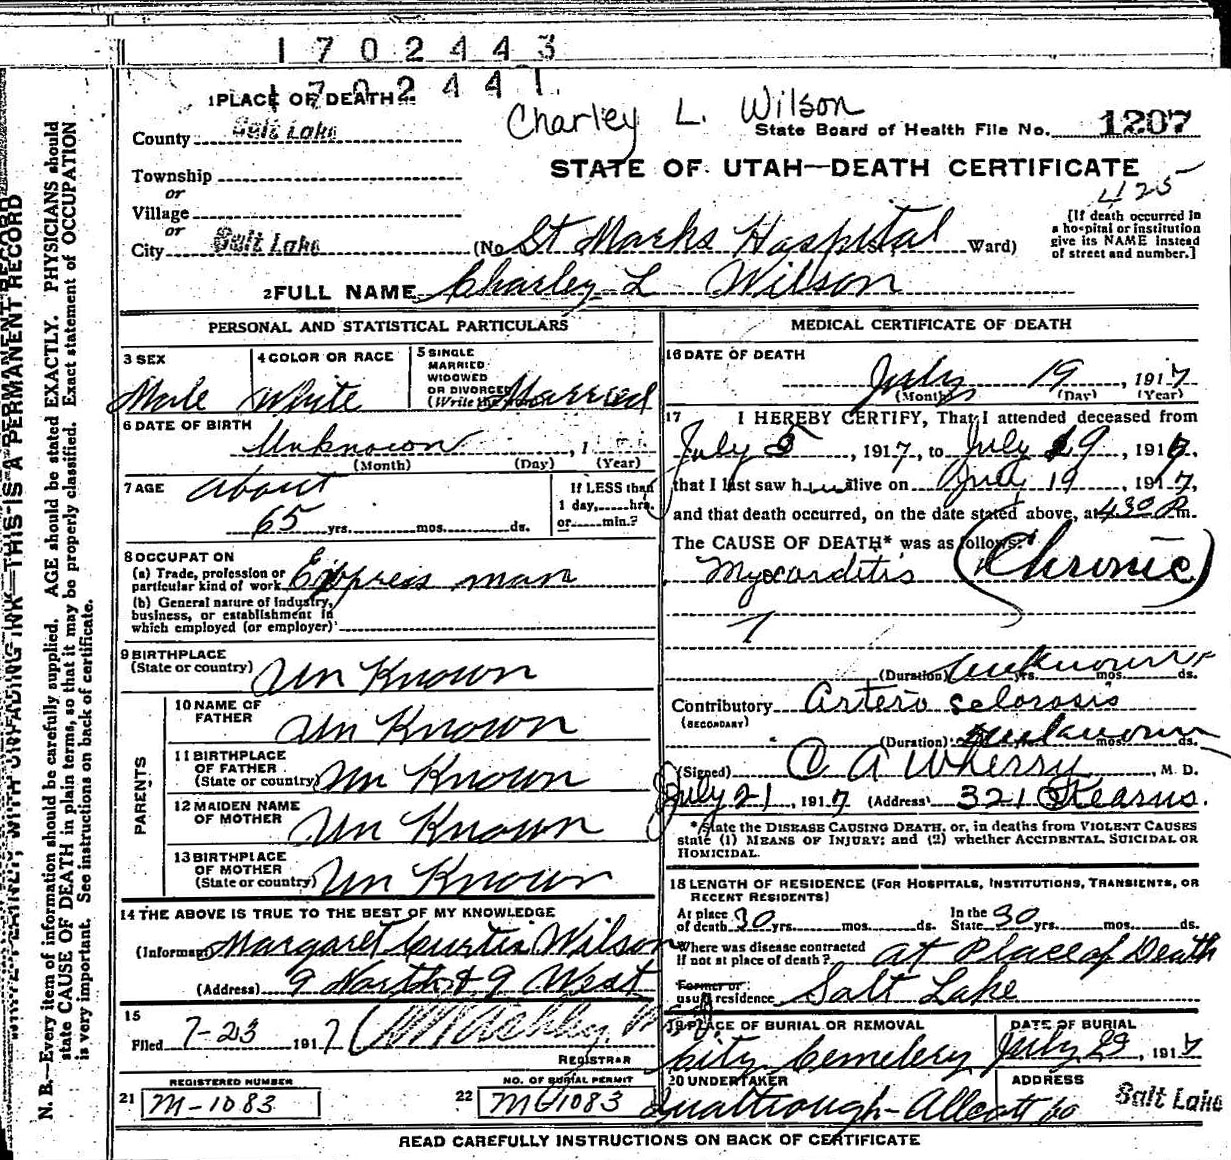 1702443
1702441
1 PLACE OF DEATH
Charley L. Wilson
County Salt Lake
State Board of Health File No. 1207
STATE OF UTAH—DEATH CERTIFICATE
Township
or
Village
or
City Salt Lake
425
(No St Marks Hospital Ward)
[If death occurred in
a hospital or institution
give its NAME instead
of street and number.]
2 FULL NAME Charley L Wilson
PERSONAL AND STATISTICAL PARTICULARS
3 SEX
Male
4 COLOR OR RACE
White
5 SINGLE
MARRIED
WIDOWED
OR DIVORCED
(Write the word)
Married
6 DATE OF BIRTH
Unknown , 1
(Month) (Day) (Year)
7 AGE about
65 yrs. mos. ds.
If LESS than
1 day, hrs.
or min.?
8 OCCUPATION
(a) Trade, profession or
particular kind of work Express man
(b) General nature of industry,
business, or establishment in
which employed (or employer)
9 BIRTHPLACE
(State or country) Un Known
PARENTS
10 NAME OF
FATHER Un Known
11 BIRTHPLACE
OF FATHER
(State or country) Un Known
12 MAIDEN NAME
OF MOTHER Un Known
13 BIRTHPLACE
OF MOTHER
(State or country) Un Known
14 THE ABOVE IS TRUE TO THE BEST OF MY KNOWLEDGE
(Informant) Margaret Curtis Wilson
(Address) 9 North & 9 West
15
Filed 7-23 1917
REGISTRAR
REGISTERED NUMBER
21 M-1083
NO. OF BURIAL PERMIT
22 M61083
MEDICAL CERTIFICATE OF DEATH
16 DATE OF DEATH
July 19, 1917
(Month) (Day) (Year)
17 I HEREBY CERTIFY, That I attended deceased from
July 5, 1917, to July 19, 1917,
that I last saw him alive on July 19, 1917,
and that death occurred, on the date stated above, at 430 P m.
The CAUSE OF DEATH* was as follows:
Myocarditis (Chronic)
(Duration) unknown yrs. mos. ds.
Contributory Arterio sclorosis
(SECONDARY)
(Duration) unknown mos. ds.
(Signed) C A Wherry, M. D.
July 21, 1917 (Address) 321 Stearns.
*State the DISEASE CAUSING DEATH, or, in deaths from VIOLENT CAUSES
state (1) MEANS OF INJURY; and (2) whether ACCIDENTAL, SUICIDAL OR
HOMICIDAL.
18 LENGTH OF RESIDENCE (FOR HOSPITALS, INSTITUTIONS, TRANSIENTS, OR
RECENT RESIDENTS)
At place
of death 30 yrs. mos. ds.
In the
State 30 yrs. mos. ds.
Where was disease contracted
If not at place of death? at Place of Death
Former or
usual residence Salt Lake
19 PLACE OF BURIAL OR REMOVAL
City Cemetery
DATE OF BURIAL
July 23, 1917
20 UNDERTAKER
Qualtrough-Allcott Co
ADDRESS
Salt Lake
READ CAREFULLY INSTRUCTIONS ON BACK OF CERTIFICATE
WRITE PLAINLY, WITH UNFADING INK—THIS IS A PERMANENT RECORD
N. B.—Every item of information should be carefully supplied. AGE should be stated EXACTLY. PHYSICIANS should
state CAUSE OF DEATH in plain terms, so that it may be properly classified. Exact statement of OCCUPATION
is very important. See instructions on back of certificate.